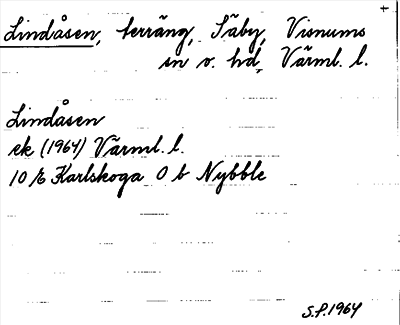 +
Lindåsen, terräng, Säby, Visnums
sn o. hd, Värml. l.
Lindåsen
ek (1964) Värml. l.
10 E Karlskoga O b Nybble
S.P. 1964